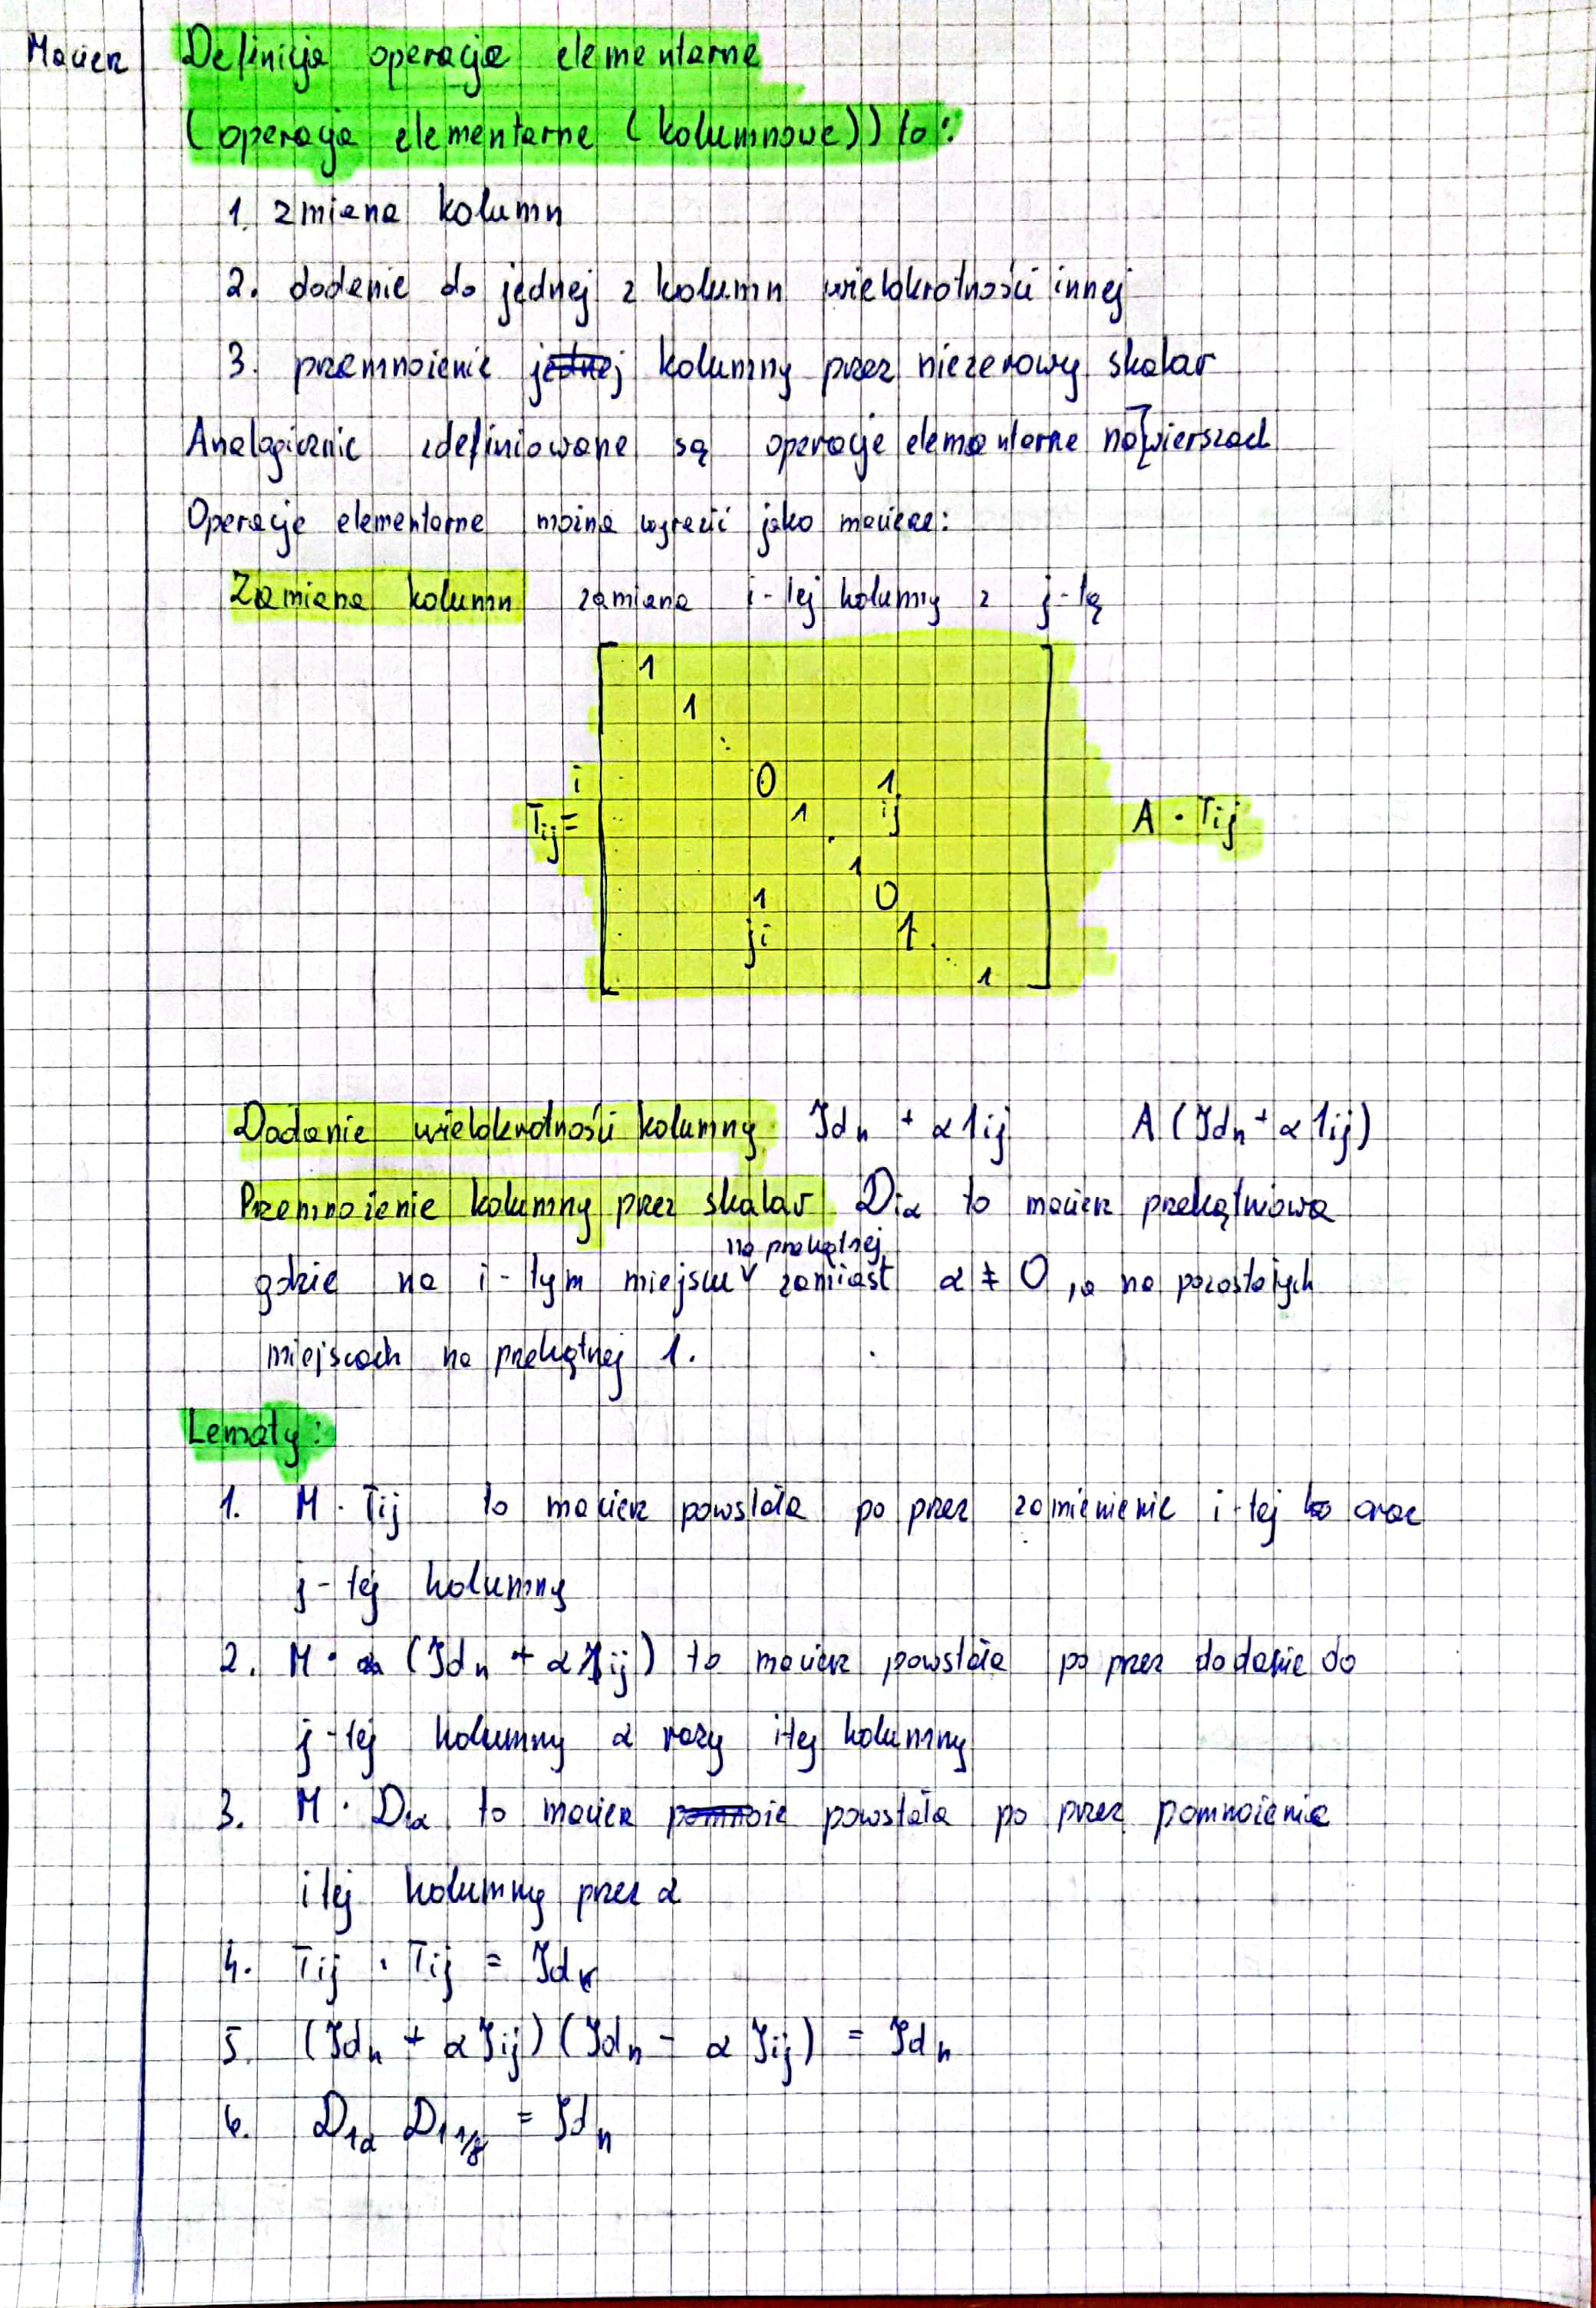 Macierz
Definicja operacja elementarna
(operacja elementarne (kolumnowe)) to:
1. zmiana kolumn
2. dodanie do jednej z kolumn wielokrotności innej
3. przemnożenie jednej kolumny przez niezerowy skalar
Analogicznie zdefiniowane są operacje elementarne na wierszach
Operacje elementarne można wyrazić jako macierze:
Zamiana kolumn zamiana i-tej kolumny z j-tą
1
1
i 0 1
Tij = 1 ij A · Tij
1
1 0
ji 1
1
Dodanie wielokrotności kolumny Idn + α1ij A (Idn + α1ij)
Przemnożenie kolumny przez skalar Diα to macierz przekątniowa
na przekątnej
gdzie na i-tym miejscu ∨ zamiast α ≠ 0, a na pozostałych
miejscach na przekątnej 1.
Lematy:
1. M · Tij to macierz powstała po przez zamienienie i-tej ko oraz
j-tej kolumny
2. M · (Idn + α1ij) to macierz powstała po przez dodanie do
j-tej kolumny α razy itej kolumny
3. M · Diα to macierz pomnoże powstała po przez pomnożenie
itej kolumny przez α
4. Tij · Tij = Idn
5. (Idn + αIij)(Idn - αIij) = Idn
6. D1α D1 1/α = Idn